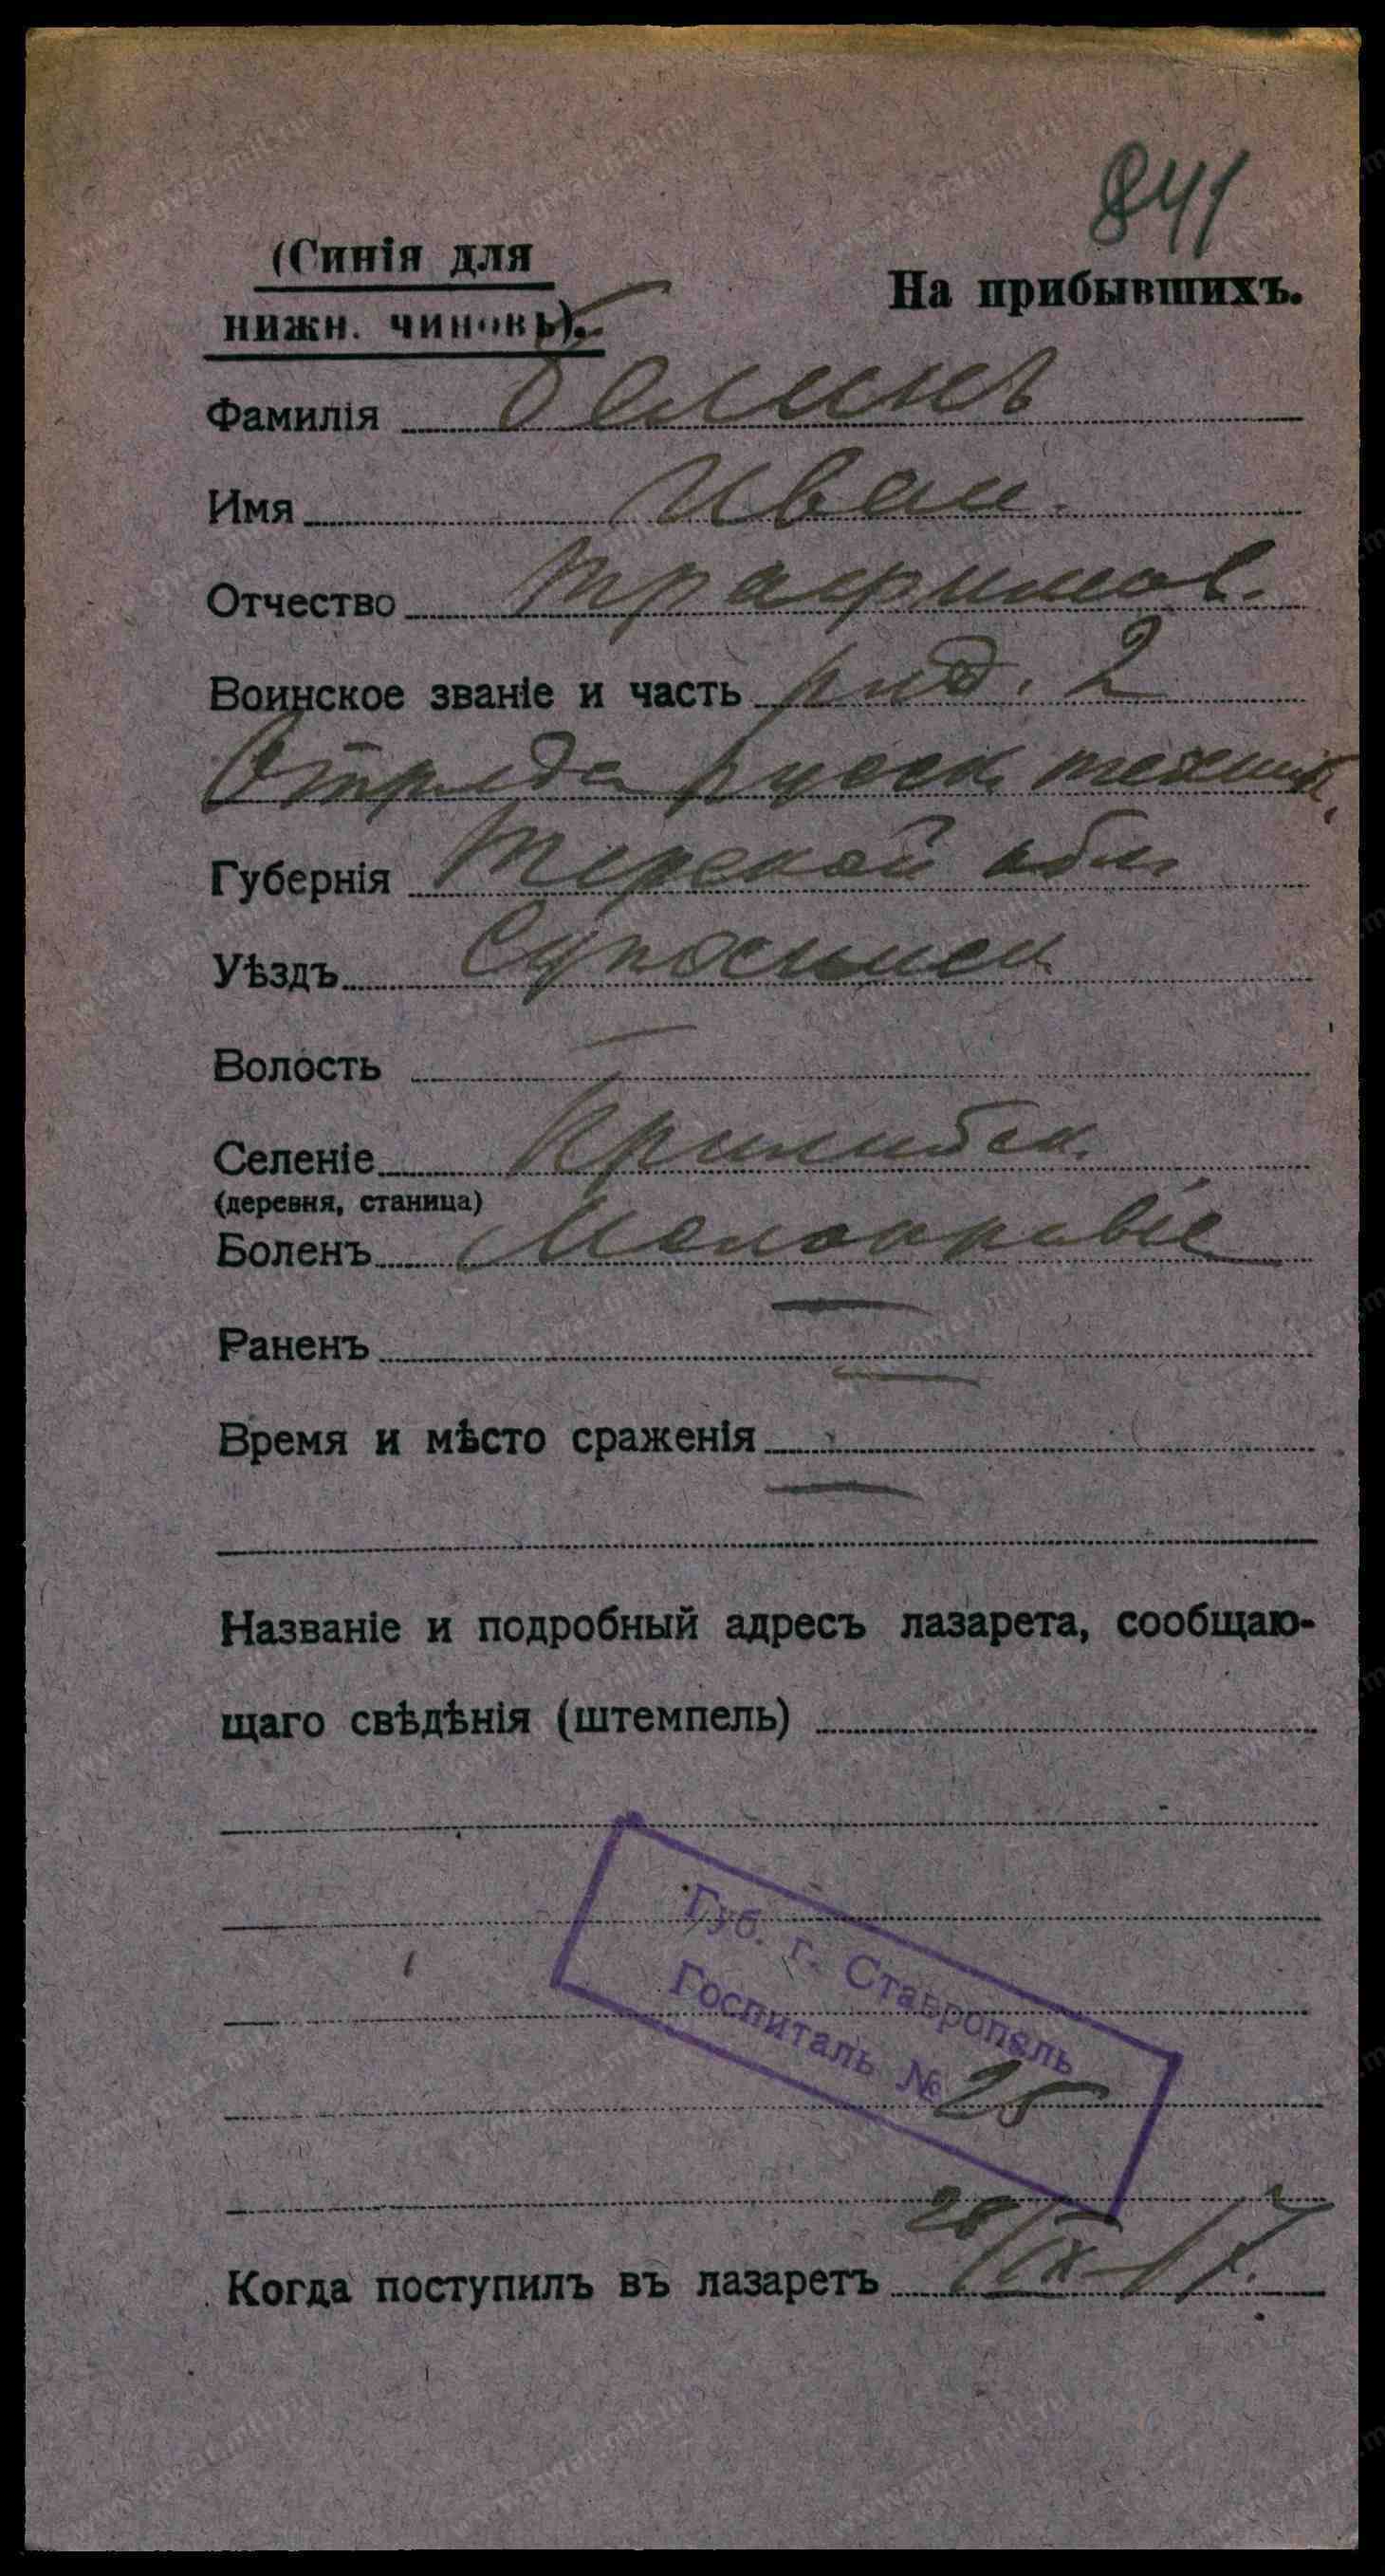 841
(Синія для
На прибывшихъ.
нижн. чиновъ).
Фамилія Белинъ
Имя Иван.
Отчество Трафимов.
Воинское званіе и часть ряд. 2
Отряда русск. техник.
Губернія Терской обл.
Уѣздъ
Волость —
Селеніе
(деревня, станица)
Боленъ Малокровіе
Раненъ —
Время и мѣсто сраженія —
Названіе и подробный адресъ лазарета, сообщаю-
щаго свѣдѣнія (штемпель)
Губ. г. Ставрополь
Госпиталь № 25
Когда поступилъ въ лазаретъ 28/IX-17.